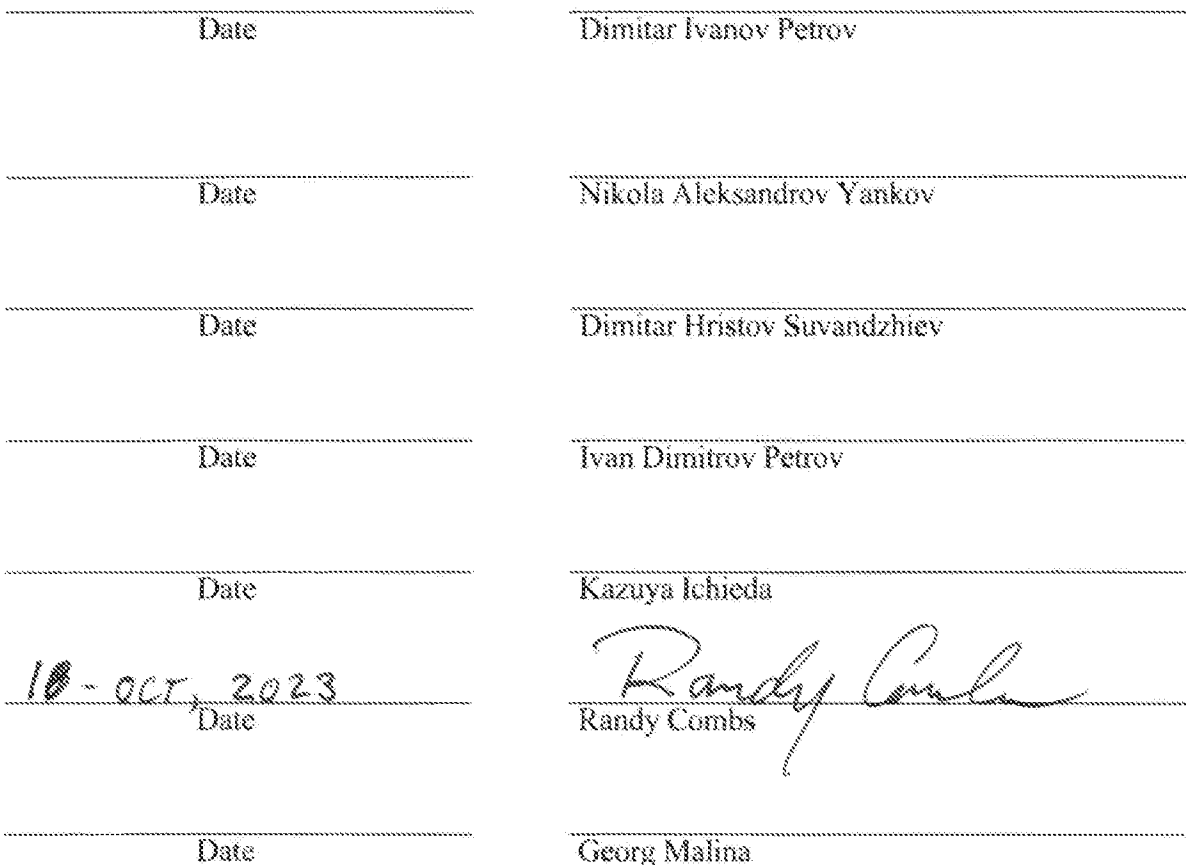 Date Dimitar Ivanov Petrov
Date Nikola Aleksandrov Yankov
Date Dimitar Hristov Suvandzhiev
Date Ivan Dimitrov Petrov
Date Kazuya Ichieda
- OCT, 2023 Randy Combs
Date Randy Combs
Date Georg Malina